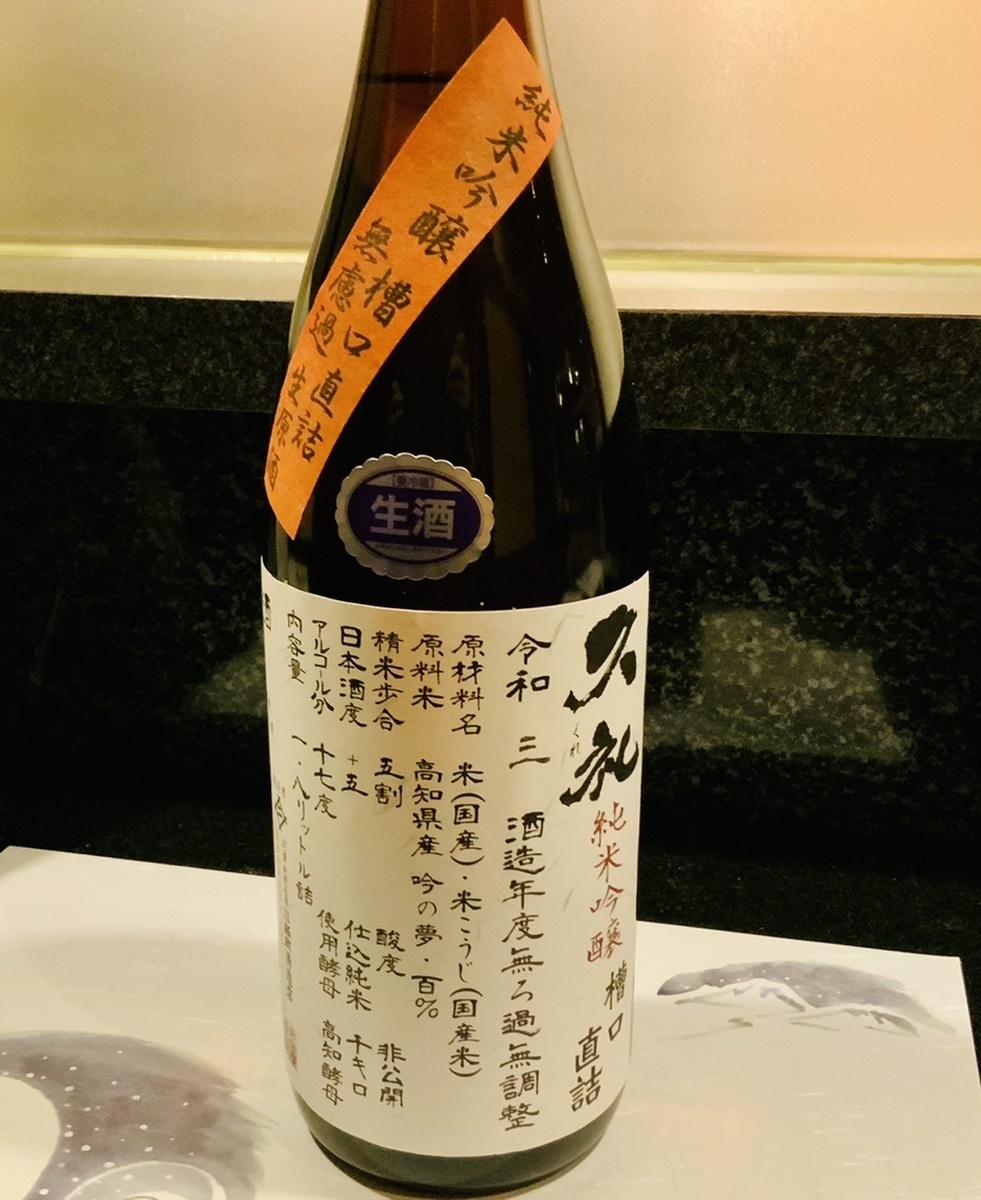 純米吟醸
槽口直詰
無慮過生原酒
【要冷蔵】
生酒
久礼
くれ
純米吟醸 槽口
直詰
令和 三 酒造年度無ろ過無調整
原材料名 米(国産)・米こうじ(国産米)
原料米 高知県産 吟の夢・百%
精米歩合 五割 酸度 非公開
日本酒度 +五 仕込純米 千キロ
アルコール分 十七度 使用酵母 高知酵母
内容量 一・八リットル詰